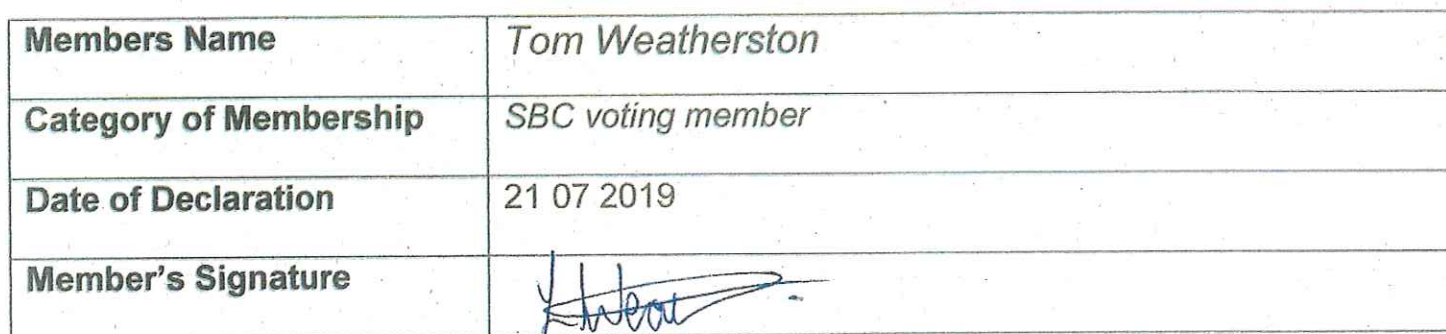 Members Name Tom Weatherston
Category of Membership SBC voting member
Date of Declaration 21 07 2019
Member's Signature